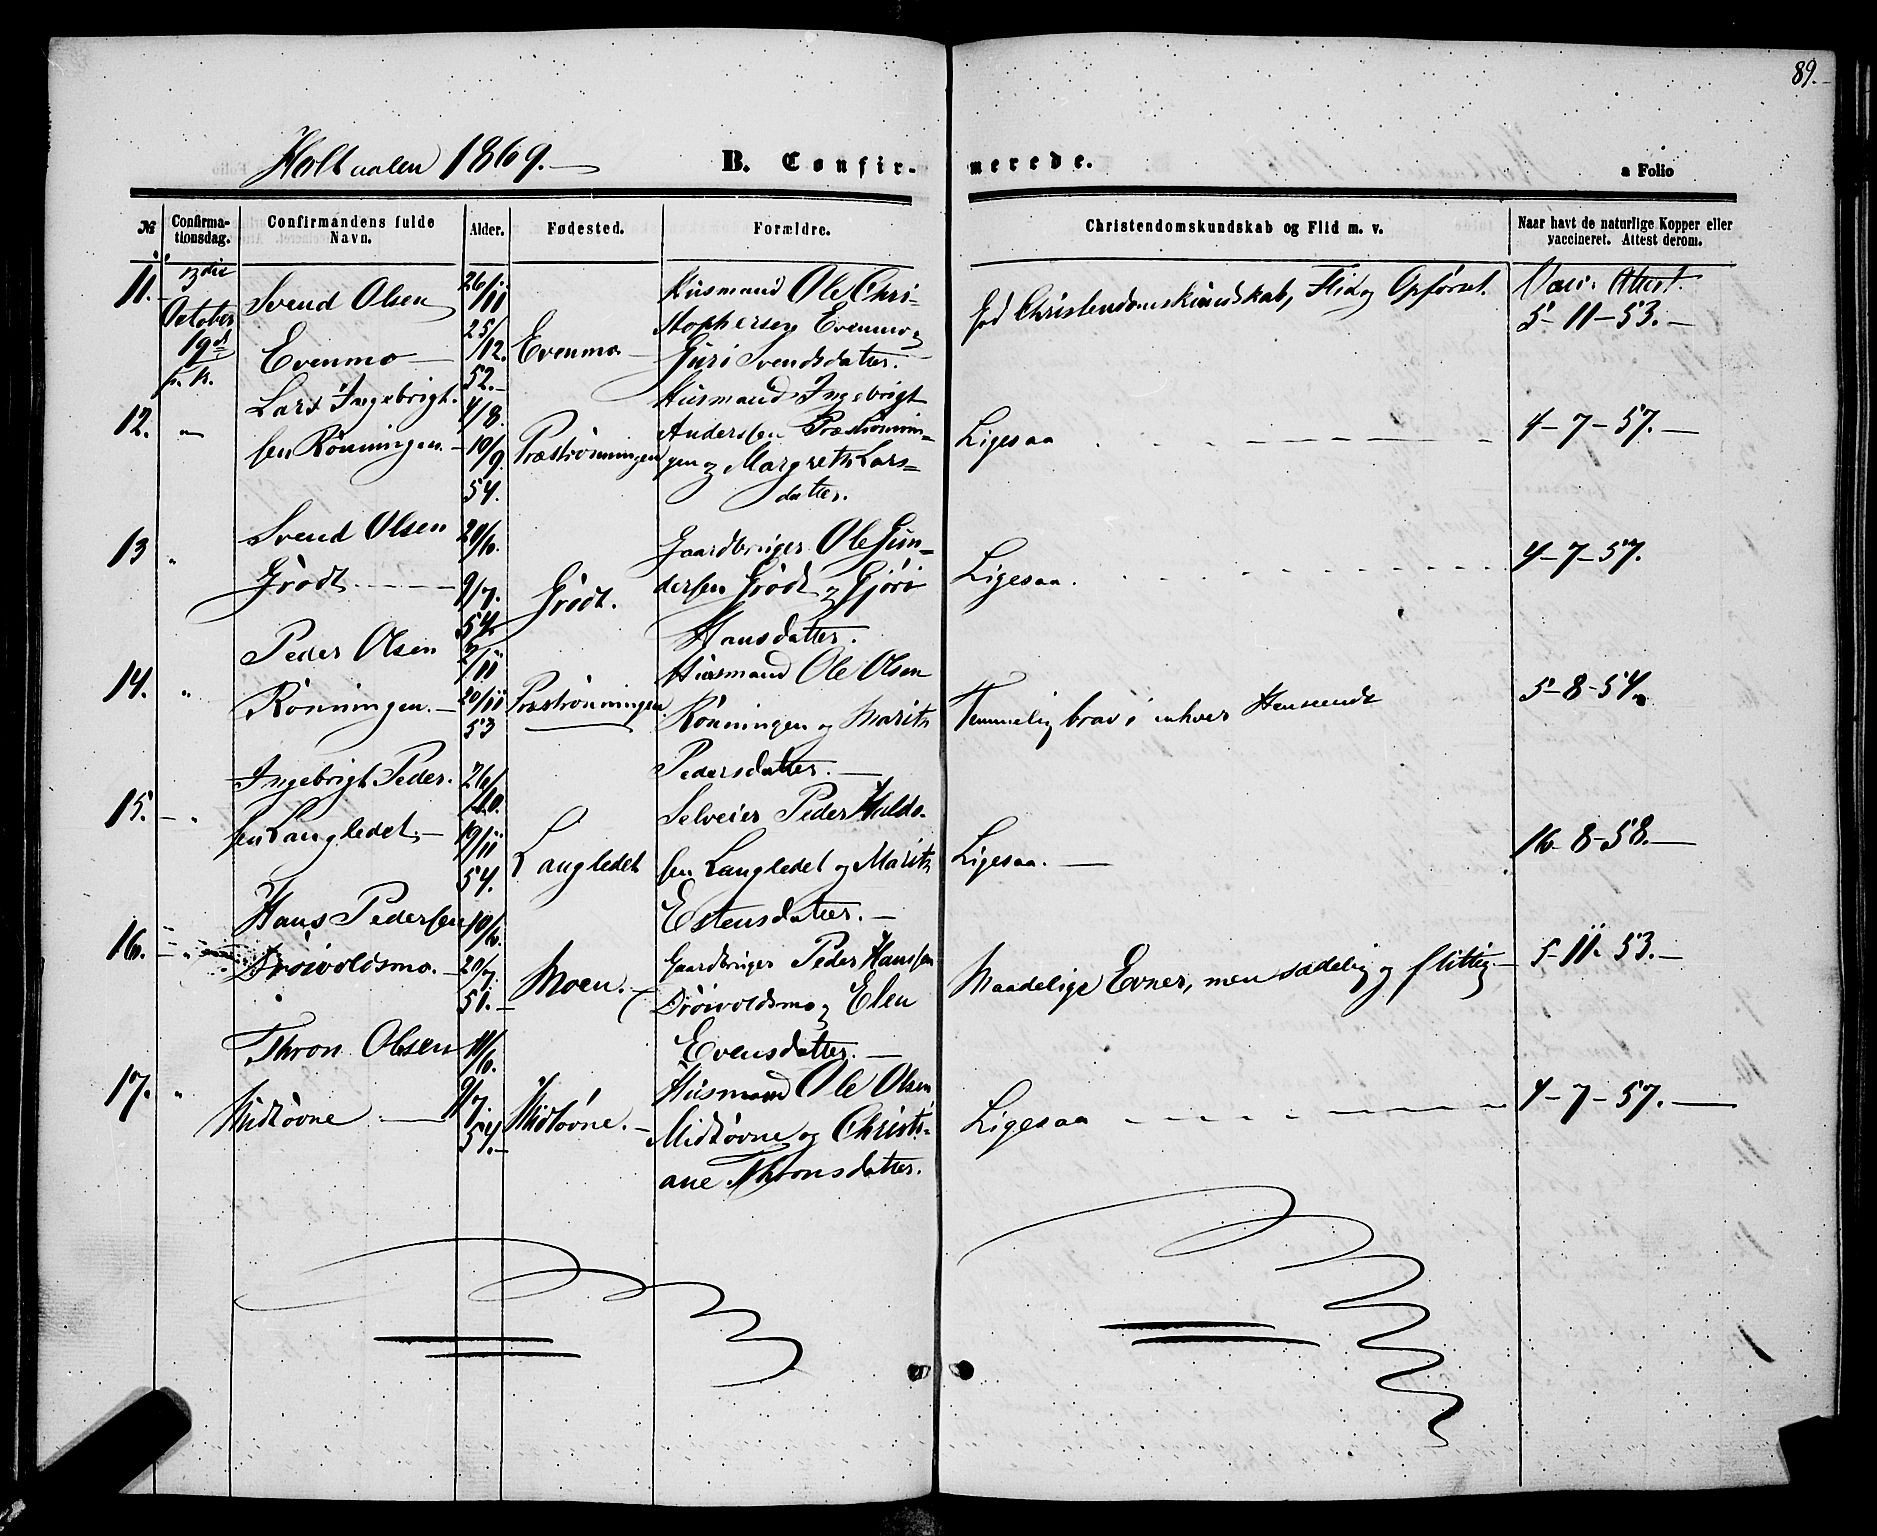 89.
Holtaalen 1869.
B. Confir-
merede.
a Folio
№
Confirma-
tionsdag.
Confirmandens fulde
Navn.
Alder.
Fødested.
Forældre.
Christendomskundskab og Flid m. v.
Naar havt de naturlige Kopper eller
vaccineret. Attest derom.
11.
October
Svend Olsen
Evenmo
26/11
25/12.
52.
Evenmo
Husmand Ole Chri-
stophersen Evenmo og
Guri Svendsdatter.
God Christendomskundskab, Flid og Opførsel.
Vacc. Attest.
5-11-53.
12. "
Lars Ingebrigt-
sen Rønningen.
4/8.
10/9.
54.
Præstrønningen
Husmand Ingebrigt
Anderssen Præstrønnin-
gen og Margreth Lars-
datter.
Ligesaa
4-7-57.
13 "
Svend Olsen
Grødt.
20/6.
9/7.
54
Grødt.
Gaardbruger Ole Gun-
dersen Grødt og Gjøri
Hansdatter.
Ligesaa.
4-7-57.
14. "
Peder Olsen
Rønningen.
2/11
20/11
53
Præstrønningen
Husmand Ole Olsen
Rønningen og Marith
Pedersdatter.
Temmelig brav i enhver Henseende
5-8-54.
15. "
Ingebrigt Peder-
sen Langledet.
26/10.
19/11
54.
Langledet
Selveier Peder Halds-
sen Langledet og Marith
Estensdatter.
Ligesaa.
16-8-58.
16. "
Hans Pedersen
Drøivoldsmo.
10/6.
20/7
51.
Moen.
Gaardbruger Peder Hansen
Drøivoldsmo og Elen
Evensdatter.
Maadelige Evner, men sædelig og flittig
5-11-53.
17. "
Thron Olsen
Midtøvne
11/6.
9/7.
54.
Midtøvne.
Husmand Ole Olsen
Midtøvne og Christi-
ane Thronsdatter.
Ligesaa
4-7-57.